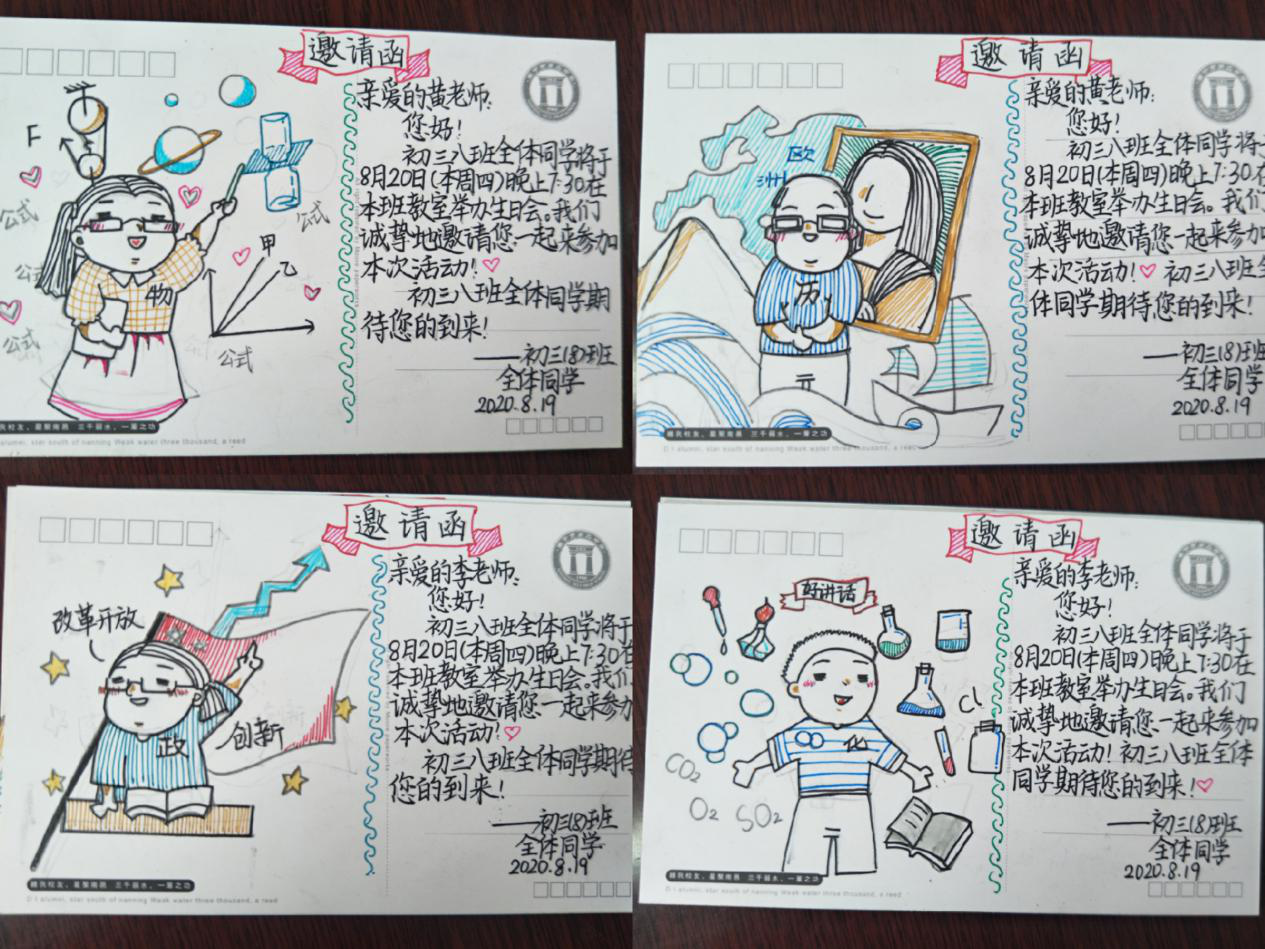 邀请函
亲爱的黄老师:
您好!
初三八班全体同学将于
8月20日(本周四)晚上7:30在
本班教室举办生日会。我们
诚挚地邀请您一起来参加
本次活动!
初三八班全体同学期
待您的到来!
——初三(8)班
全体同学
2020.8.19
F
公式
公式
公式
公式
甲
乙
物
公式
D I alumni, star south of nanning Weak water three thousand, a reed
邀请函
亲爱的黄老师:
您好!
初三八班全体同学将于
8月20日(本周四)晚上7:30在
本班教室举办生日会。我们
诚挚地邀请您一起来参加
本次活动! 初三八班全
体同学期待您的到来!
——初三(8)班
全体同学
2020.8.19
欧
洲
历
D I alumni, star south of nanning Weak water three thousand, a reed
邀请函
亲爱的李老师:
您好!
初三八班全体同学将于
8月20日(本周四)晚上7:30在
本班教室举办生日会。我们
诚挚地邀请您一起来参加
本次活动!
初三八班全体同学期待
您的到来!
——初三(8)班
全体同学
2020.8.19
改革开放
创新
政
D I alumni, star south of nanning Weak water three thousand, a reed
邀请函
亲爱的李老师:
您好!
初三八班全体同学将于
8月20日(本周四)晚上7:30在
本班教室举办生日会。我们
诚挚地邀请您一起来参加
本次活动! 初三八班全体
同学期待您的到来!
——初三(8)班
全体同学
2020.8.19
好讲话
化
Cl
CO2
O2 SO2
D I alumni, star south of nanning Weak water three thousand, a reed